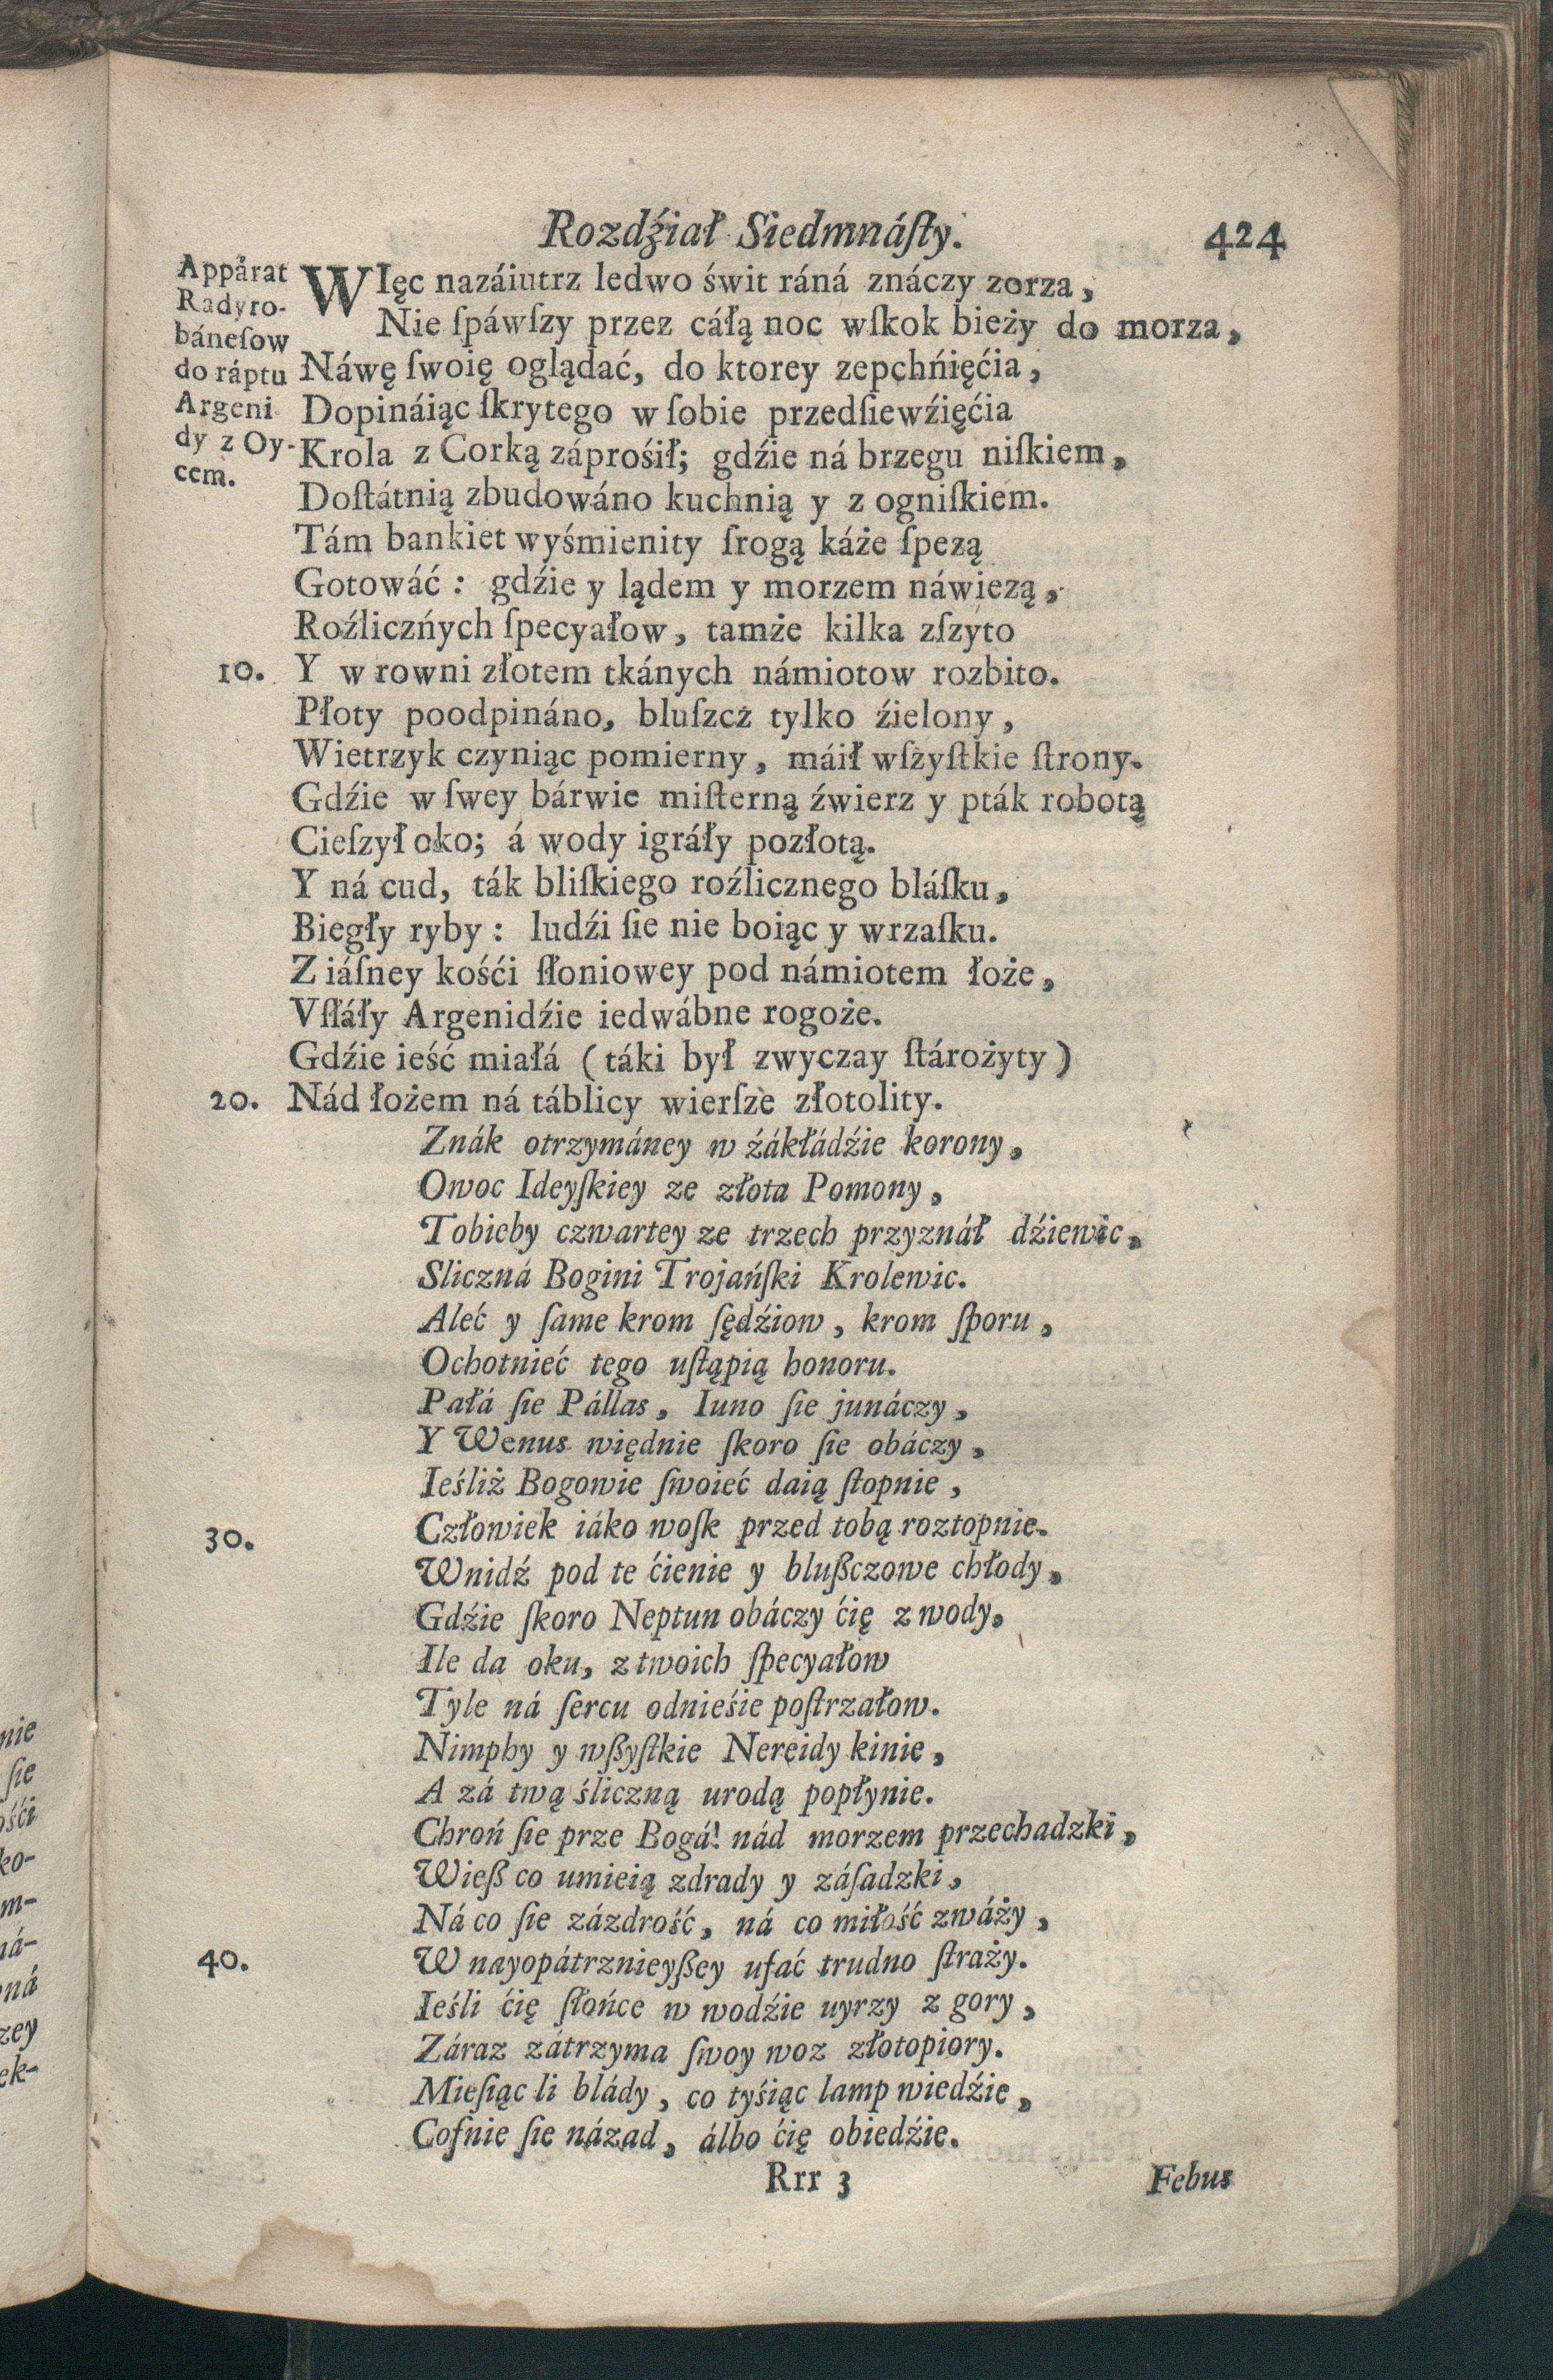 Rozdźiał Siedmnáſty. 424
Appárat
Radyro-
báneſow
do ráptu
Argeni
dy z Oy-
cem.
WIęc nazáiutrz ledwo świt ráná znáczy zorza,
Nie ſpáwſzy przez cáłą noc wſkok bieży do morza,
Náwę ſwoię oglądać, do ktorey zepchńięćia,
Dopináiąc ſkrytego w ſobie przedſiewźięćia
Krola z Corką záprośił; gdźie ná brzegu niſkiem,
Doſtátnią zbudowáno kuchnią y z ogniſkiem.
Tám bankiet wyśmienity ſrogą káże ſpezą
Gotowáć: gdźie y lądem y morzem náwiezą,
Roźliczńych ſpecyałow, tamże kilka zſzyto
10. Y w rowni złotem tkánych námiotow rozbito.
Płoty poodpináno, bluſzcz tylko źielony,
Wietrzyk czyniąc pomierny, máił wſzyſtkie ſtrony.
Gdźie w ſwey bárwie miſterną źwierz y pták robotą
Cieſzył oko; á wody igráły pozłotą.
Y ná cud, ták bliſkiego roźlicznego bláſku,
Biegły ryby: ludźi ſie nie boiąc y wrzaſku.
Z iáſney kośći ſłoniowey pod námiotem łoże,
Vſłáły Argenidźie iedwábne rogoże.
Gdźie ieść miałá (táki był zwyczay ſtárożyty)
20. Nád łożem ná táblicy wierſze złotolity.
Znák otrzymáney w źákłádźie korony,
Owoc Ideyſkiey ze złota Pomony,
Tobieby czwartey ze trzech przyznáł dźiewic,
Sliczná Bogini Trojańſki Krolewic.
Aleć y ſame krom ſędźiow, krom ſporu,
Ochotnieć tego uſtąpią honoru.
Pałá ſie Pállas, Iuno ſie junáczy,
Y Wenus więdnie ſkoro ſie obáczy,
Ieśliż Bogowie ſwoieć daią ſtopnie,
30. Człowiek iáko woſk przed tobą roztopnie.
Wnidź pod te ćienie y blußczowe chłody,
Gdźie ſkoro Neptun obáczy ćię z wody,
Ile da oku, z twoich ſpecyałow
Tyle ná ſercu odnieśie poſtrzałow.
Nimphy y wßyſtkie Nereidy kinie,
A zá twą śliczną urodą popłynie.
Chroń ſie prze Bogá! nád morzem przechadzki,
Wieß co umieią zdrady y záſadzki,
Ná co ſie zázdrość, ná co miłość zwáży,
40. W nayopátrznieyßey ufać trudno ſtraży.
Ieśli ćię ſłońce w wodźie uyrzy z gory,
Záraz zátrzyma ſwoy woz złotopiory.
Mieſiąc li blády, co tyśiąc lamp wiedźie,
Cofnie ſie názad, álbo ćię obiedźie.
Rrr 3 Febus
nie
ſie
ośći
ko-
m-
ná-
ná
zey
ek-